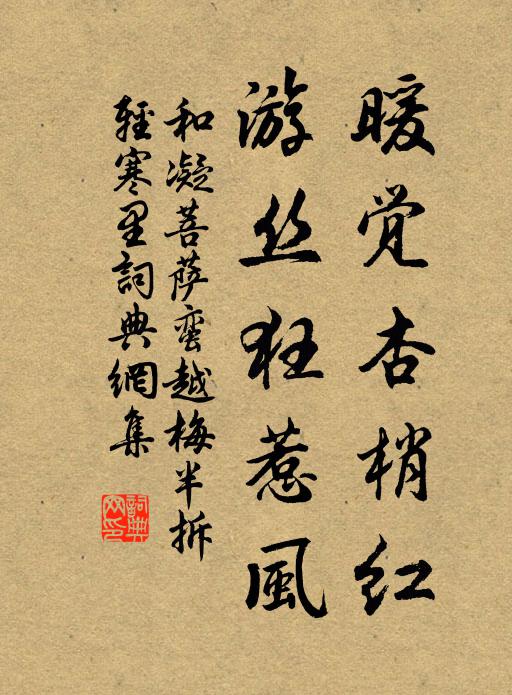 暖觉杏梢红
游丝狂惹風
和凝菩萨蛮越梅半拆
輕寒里詞典網集
詞典
网印